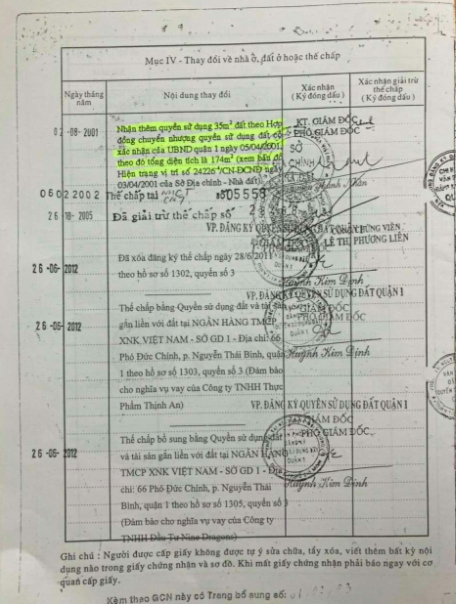 Mục IV - Thay đổi về nhà ở, đất ở hoặc thế chấp
Ngày tháng năm
Nội dung thay đổi
Xác nhận (Ký đóng dấu)
Xác nhận giải trừ thế chấp (Ký đóng dấu)
02-08-2001
Nhận thêm quyền sử dụng 35m² đất theo Hợp
đồng chuyển nhượng quyền sử dụng đất có
xác nhận của UBND quận 1 ngày 05/04/2001,
theo đó tổng diện tích là 174m² (xem bản đồ
Hiện trạng vị trí số 24226/CN-ĐCNĐ ngày
03/04/2001 của Sở Địa chính - Nhà đất)
KT. GIÁM ĐỐC
PHÓ GIÁM ĐỐC
06 02 2002 Thế chấp tại
26-18-2005 Đã giải trừ thế chấp số
LÊ THỊ PHƯƠNG LIÊN
26-06-2012
Đã xóa đăng ký thế chấp ngày 28/6/
theo hồ sơ số 1302, quyển số 3
Huỳnh Kim Định
VP. ĐĂNG KÝ QUYỀN SỬ DỤNG ĐẤT QUẬN 1
GIÁM ĐỐC
PHÓ GIÁM ĐỐC
26-06-2012
Thế chấp bằng Quyền sử dụng đất và tài sản
gắn liền với đất tại NGÂN HÀNG TMCP
XNK VIỆT NAM - SỞ GD 1 - Địa chỉ: 66
Phó Đức Chính, p. Nguyễn Thái Bình, quận
1 theo hồ sơ số 1303, quyển số 3 (Đảm bảo
cho nghĩa vụ vay của Công ty TNHH Thực
Phẩm Thịnh An)
Huỳnh Kim Định
VP. ĐĂNG KÝ QUYỀN SỬ DỤNG ĐẤT QUẬN 1
GIÁM ĐỐC
PHÓ GIÁM ĐỐC
26-06-2012
Thế chấp bổ sung bằng Quyền sử dụng đất
và tài sản gắn liền với đất tại NGÂN HÀNG
TMCP XNK VIỆT NAM - SỞ GD 1 - Địa
chỉ: 66 Phó Đức Chính, p. Nguyễn Thái
Bình, quận 1 theo hồ sơ số 1305, quyển số 3
(Đảm bảo cho nghĩa vụ vay của Công ty
TNHH Đầu Tư Nine Dragons)
Huỳnh Kim Định
Ghi chú : Người được cấp giấy không được tự ý sửa chữa, tẩy xóa, viết thêm bất kỳ nội
dung nào trong giấy chứng nhận và sơ đồ. Khi mất giấy chứng nhận phải báo ngay với cơ
quan cấp giấy.
Kèm theo GCN này có Trang bổ sung số: